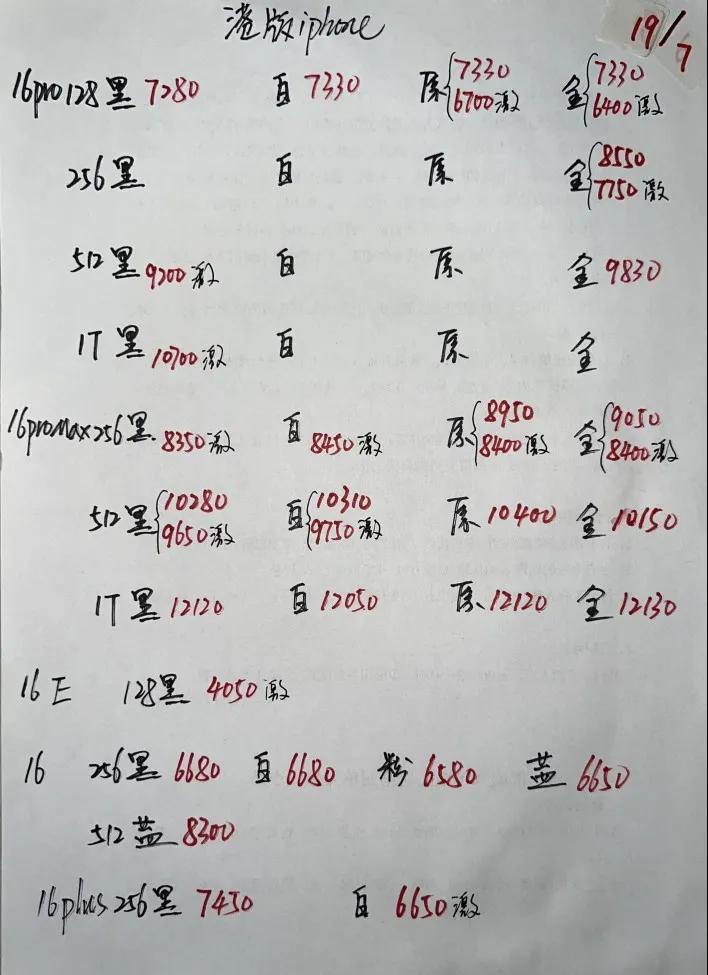 港版iphone 19/7
16pro128黑7280 白7330 原{7330 6700激 金{7330 6400激
256黑 白 原 金{8550 7750激
512黑9200激 白 原 金9830
1T黑10700激 白 原 金
16promax256黑8350激 白8450激 原{8950 8400激 金{9050 8400激
512黑{10280 9650激 白{10310 9750激 原10400 金10150
1T黑12120 白12050 原12120 金12130
16E 128黑4050激
16 256黑6680 白6680 粉6580 蓝6650
512蓝8300
16plus256黑7450 白6650激